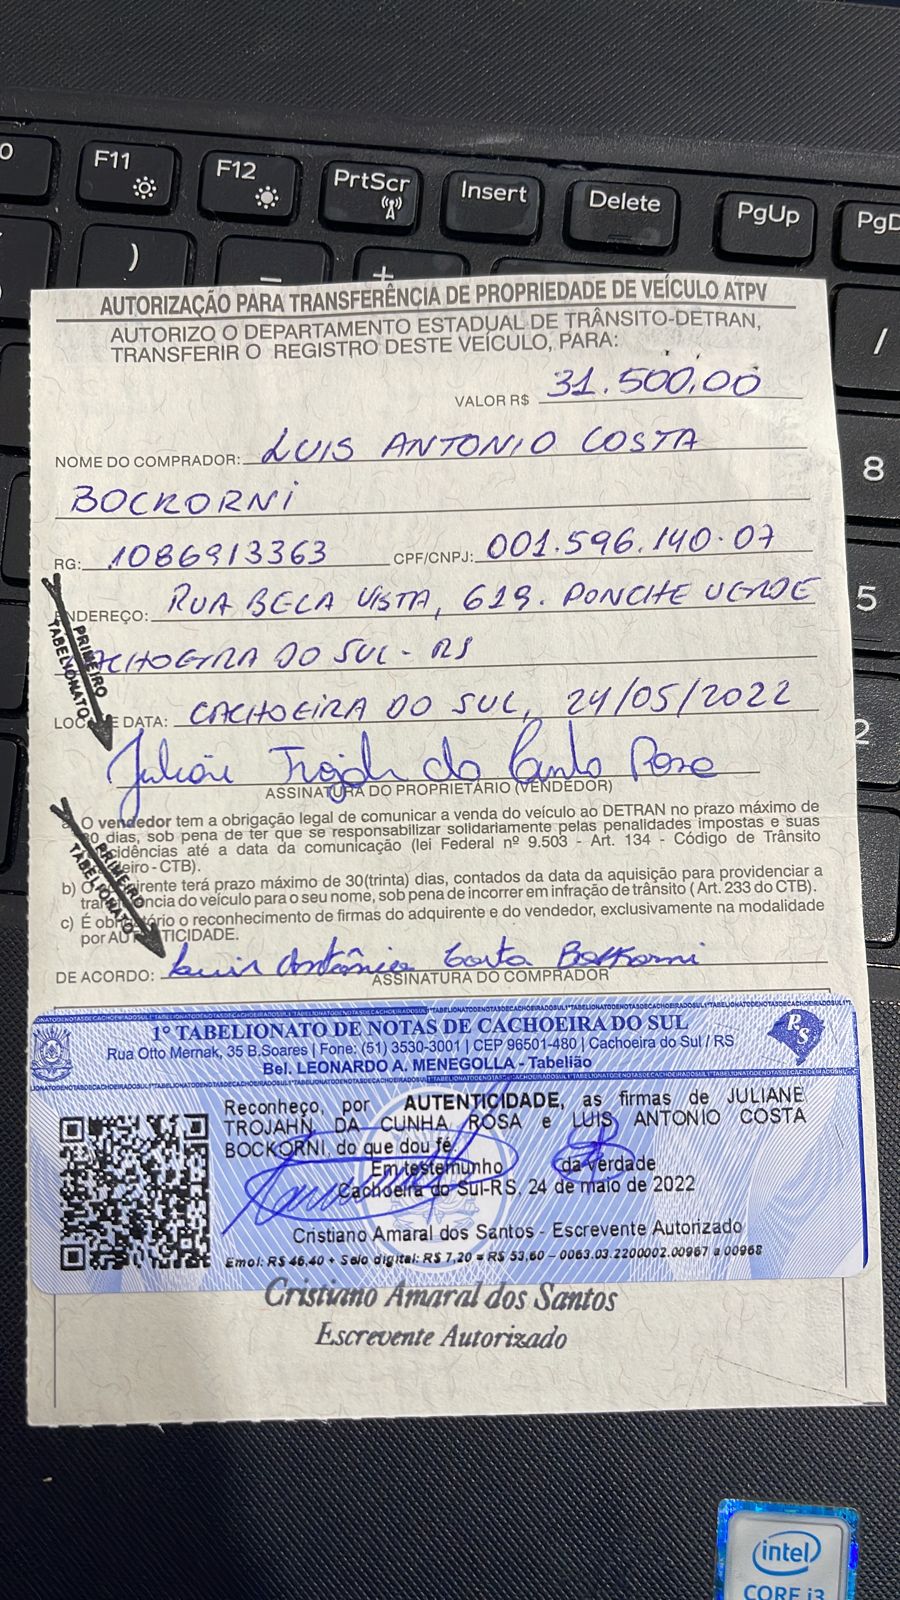 F11
F12
PrtScr
Insert
Delete
PgUp
)
_
+
/
8
5
2
AUTORIZAÇÃO PARA TRANSFERÊNCIA DE PROPRIEDADE DE VEÍCULO ATPV
AUTORIZO O DEPARTAMENTO ESTADUAL DE TRÂNSITO-DETRAN,
TRANSFERIR O REGISTRO DESTE VEÍCULO, PARA:
VALOR R$ 31.500,00
NOME DO COMPRADOR: LUIS ANTONIO COSTA
BOCKORNI
RG: 1086913363 CPF/CNPJ: 001.596.140-07
ENDEREÇO: RUA BELA VISTA, 619. PONCHE VERDE
CACHOEIRA DO SUL - RS
LOCAL E DATA: CACHOEIRA DO SUL, 24/05/2022
PRIMEIRO
TABELIONATO
ASSINATURA DO PROPRIETÁRIO (VENDEDOR)
O vendedor tem a obrigação legal de comunicar a venda do veículo ao DETRAN no prazo máximo de
dias, sob pena de ter que se responsabilizar solidariamente pelas penalidades impostas e suas
cidências até a data da comunicação (lei Federal nº 9.503 - Art. 134 - Código de Trânsito
eiro - CTB).
b) O irente terá prazo máximo de 30(trinta) dias, contados da data da aquisição para providenciar a
ncia do veículo para o seu nome, sob pena de incorrer em infração de trânsito (Art. 233 do CTB).
c) É ob ório o reconhecimento de firmas do adquirente e do vendedor, exclusivamente na modalidade
por AU TICIDADE.
PRIMEIRO
TABELIONATO
DE ACORDO: Luis Antônio Costa Bockorni
ASSINATURA DO COMPRADOR
1º TABELIONATO DE NOTAS DE CACHOEIRA DO SUL
Rua Otto Mernak, 35 B.Soares | Fone: (51) 3530-3001 | CEP 96501-480 | Cachoeira do Sul / RS
Bel. LEONARDO A. MENEGOLLA - Tabelião
RS
Reconheço, por AUTENTICIDADE, as firmas de JULIANE
TROJAHN DA CUNHA ROSA e LUIS ANTONIO COSTA
BOCKORNI, do que dou fé.
Em testemunho da verdade
Cachoeira do Sul-RS, 24 de maio de 2022
Cristiano Amaral dos Santos - Escrevente Autorizado
Emol: R$ 46,40 + Selo digital: R$ 7,20 = R$ 53,60 - 0063.03.2200002.00967 a 00968
Cristiano Amaral dos Santos
Escrevente Autorizado
intel
CORE i3